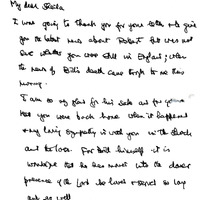 My dear Sheila
I was going to thank you for your letter and give
you the latest news about Robert but was not
sure whether you were still in England; when
the news of Bill's death came through to me this
morning.
I am so very glad for his sake and for yours
that you were back home when it happened
my loving sympathy is with you in the shock
and the loss. For Bill himself it is
wonderful that he has moved into the closer
presence of the Lord he loved & served so long
and so well